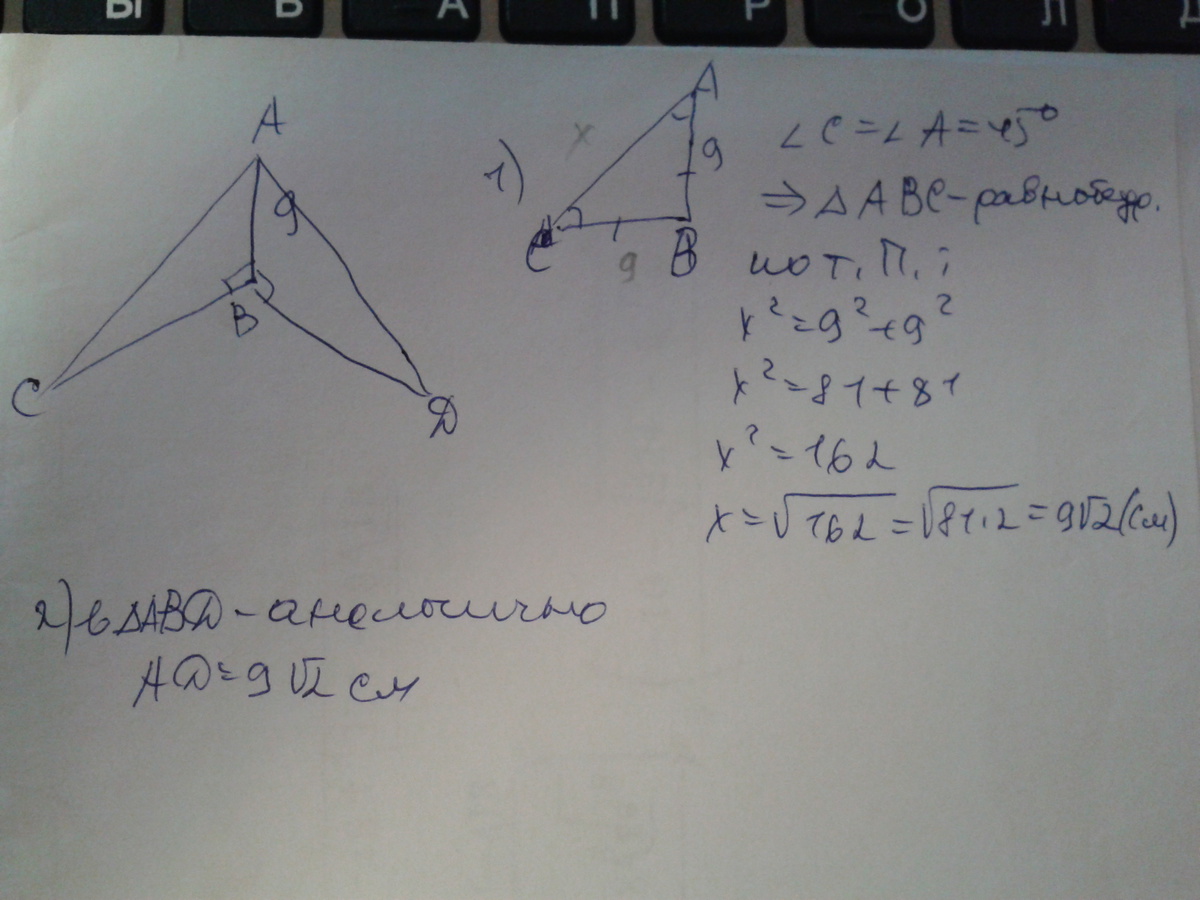 Ы В А П Р О Л Д
A
9
B
C
D
1)
A
x
9
C
9
B
∠ C = ∠ A = 45°
⇒ △ ABC - равнобедр.
по т. П. :
x² = 9² + 9²
x² = 81 + 81
x² = 162
x = √162 = √81·2 = 9√2 (см)
2) в △ABD - аналогично
AD = 9√2 см